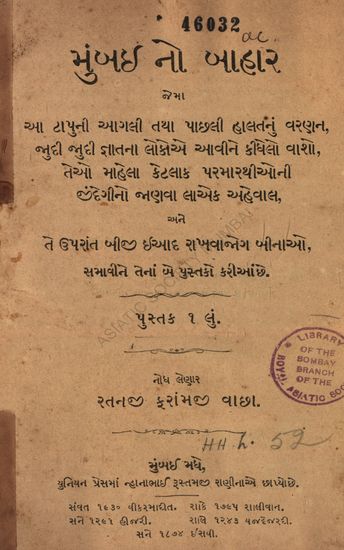 46032
મુંબઈ નો બાહાર
જેમા
આ ટાપુની આગલી તથા પાછલી હાલતનું વરણન,
જુદી જુદી જ્ઞાતના લોકોએ આવીને કીધેલો વાશો,
તેઓ માહેલા કેટલાક પરમારથીઓની
જીંદેગીનો જાણવા લાએક અહેવાલ,
અને
તે ઉપરાંત બીજી ઈઆદ રાખવાજોગ બીનાઓ,
સમાવીને તેનાં બે પુસ્તકો કરીઆંછે.
પુસ્તક ૧ લું.
LIBRARY
OF THE
BOMBAY
BRANCH
OF THE
ROYAL ASIATIC SOC
નોધ લેણાર
રતનજી ફરામજી વાછા.
HH.L. 52
મુંબઈ મધે,
યુનિયન પ્રેસમાં ન્હાનાભાઈ રૂસ્તમજી રાણીનાએ છાપ્યોછે.
સંવત ૧૯૩૦ વીકરમાદીત. શાકે ૧૭૯૫ શાલીવાન.
સને ૧૨૯૧ હીજરી. સાલે ૧૨૪૩ યજદેજરદી.
સને ૧૮૭૪ ઈસવી.
ASIATIC SOCIETY OF MUMBAI